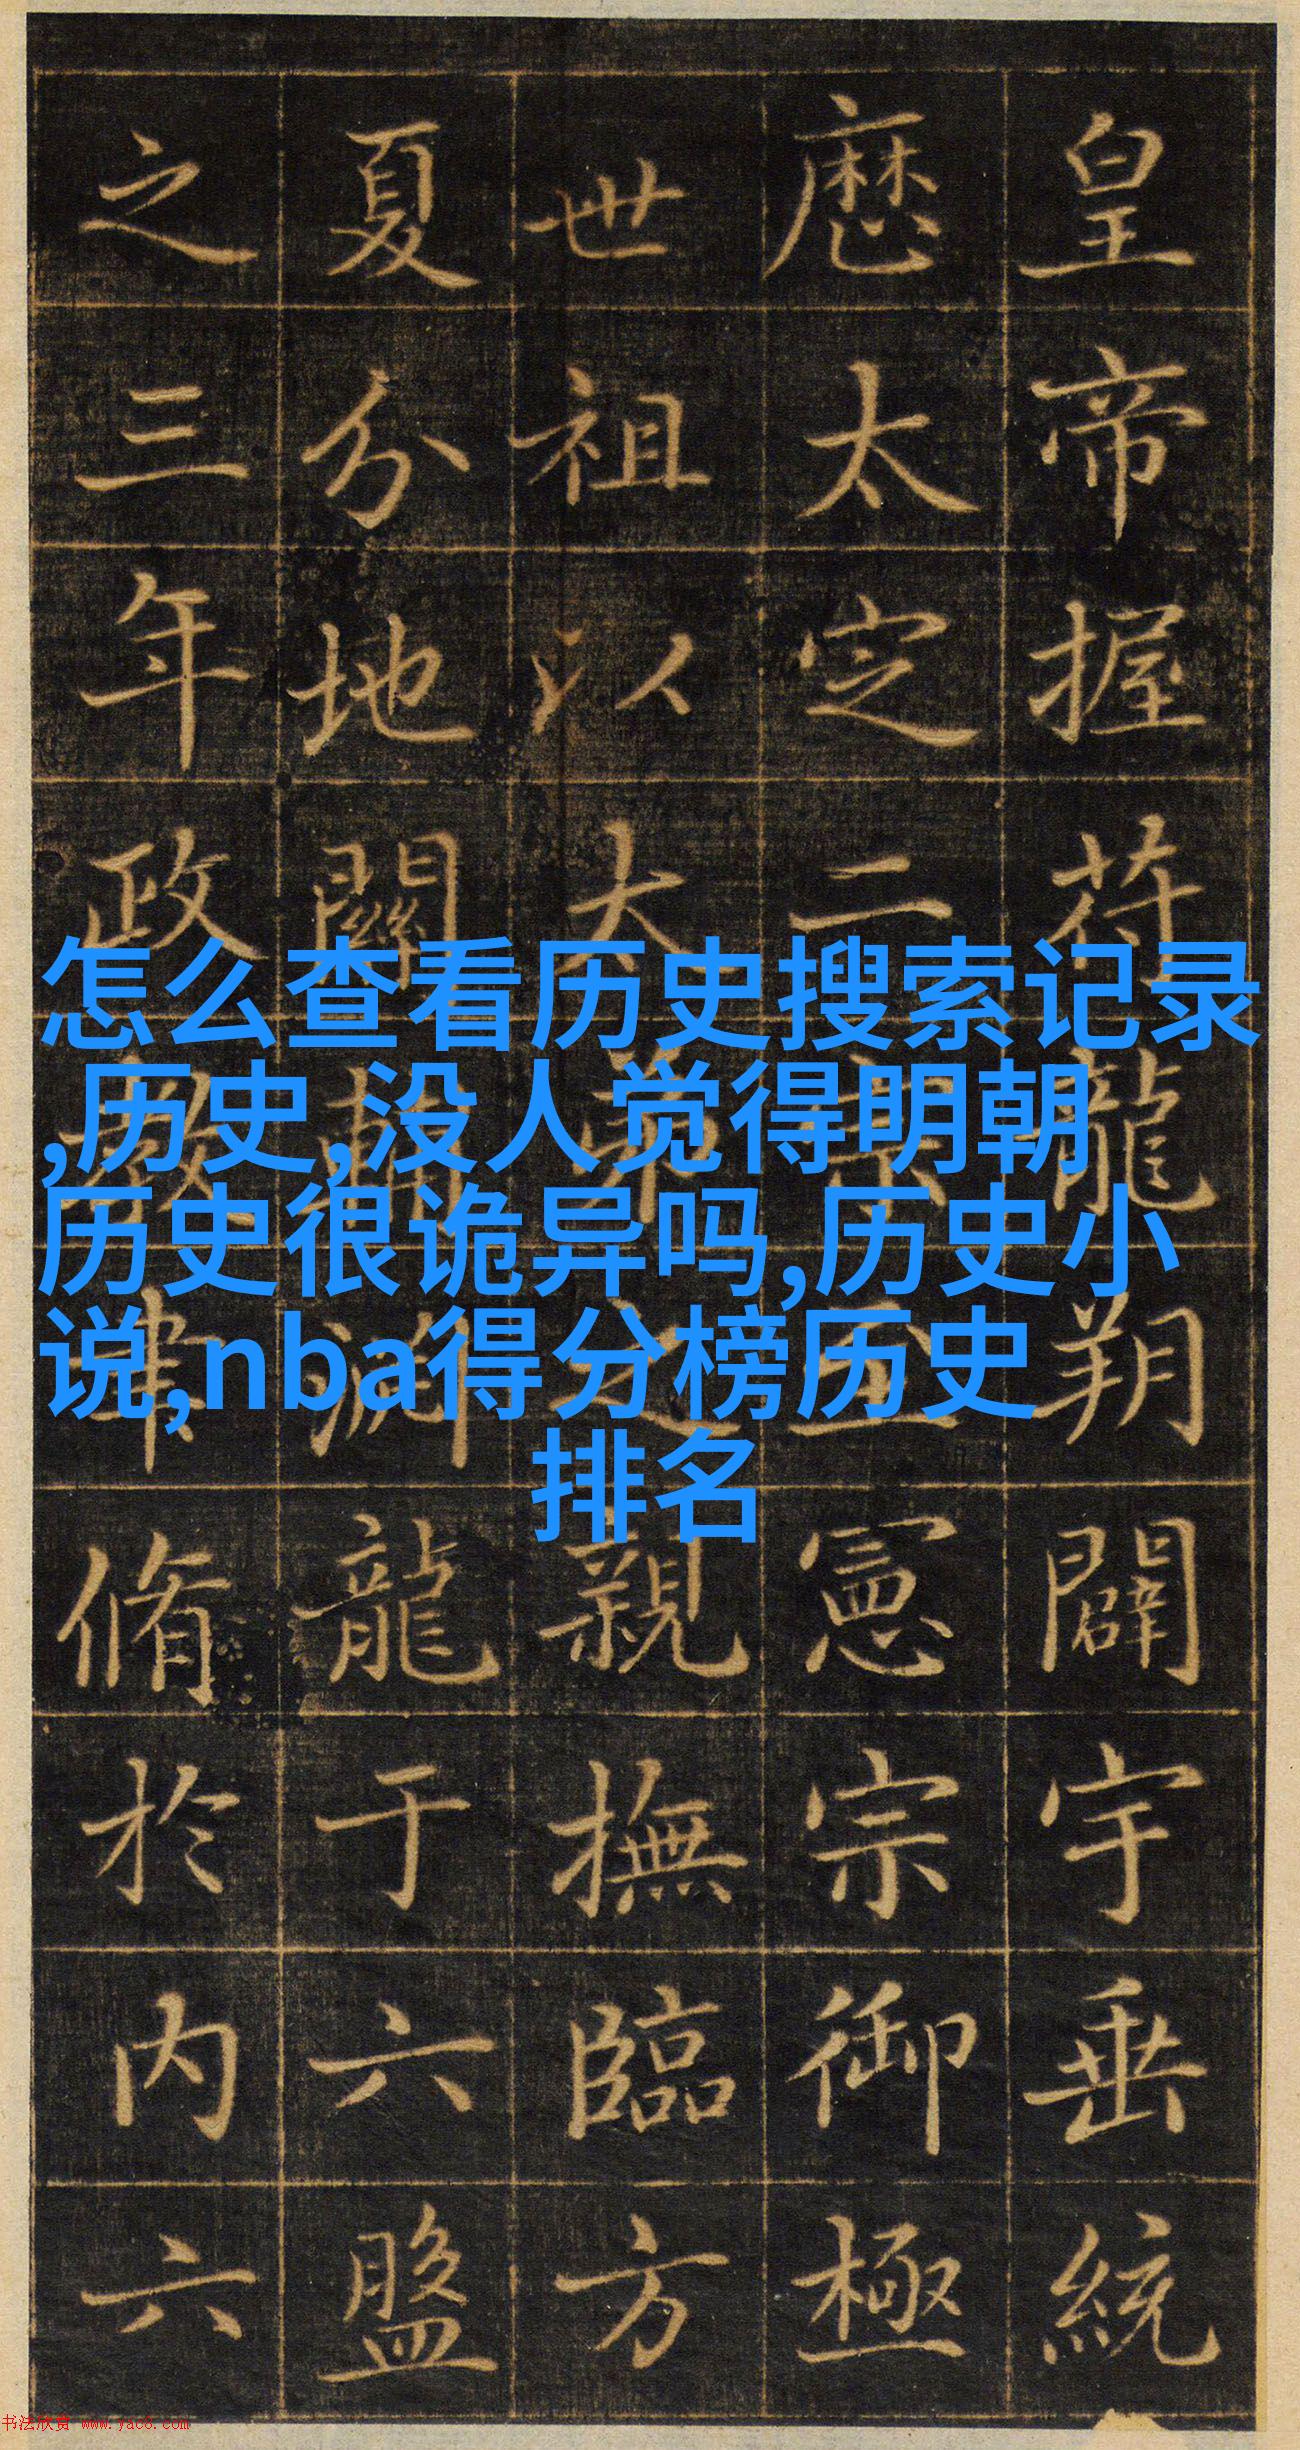 皇帝握苻龍朔闢宇垂統
厯太定二五憲宗御極
世祖以大弟之親撫臨方
夏分地關輔淵龍于六盤
之三年政教聿脩於内六
怎么查看历史搜索记录
,历史,没人觉得明朝
历史很诡异吗,历史小
说,nba得分榜历史
排名
书法欣赏 www.yac8.com